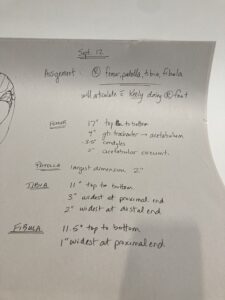 Sept. 12
Assignment: Ⓡ femur, patella, tibia, fibula
will articulate c̄ Keely doing Ⓡ foot
FEMUR 17" top to bottom
4" gtr trochanter → acetabulum
3.5" condyles
2" acetabular circumf.
PATELLA largest dimension 2"
TIBIA 11" top to bottom
3" widest at proximal end
2" widest at distal end
FIBULA 11.5" top to bottom
1" widest at proximal end